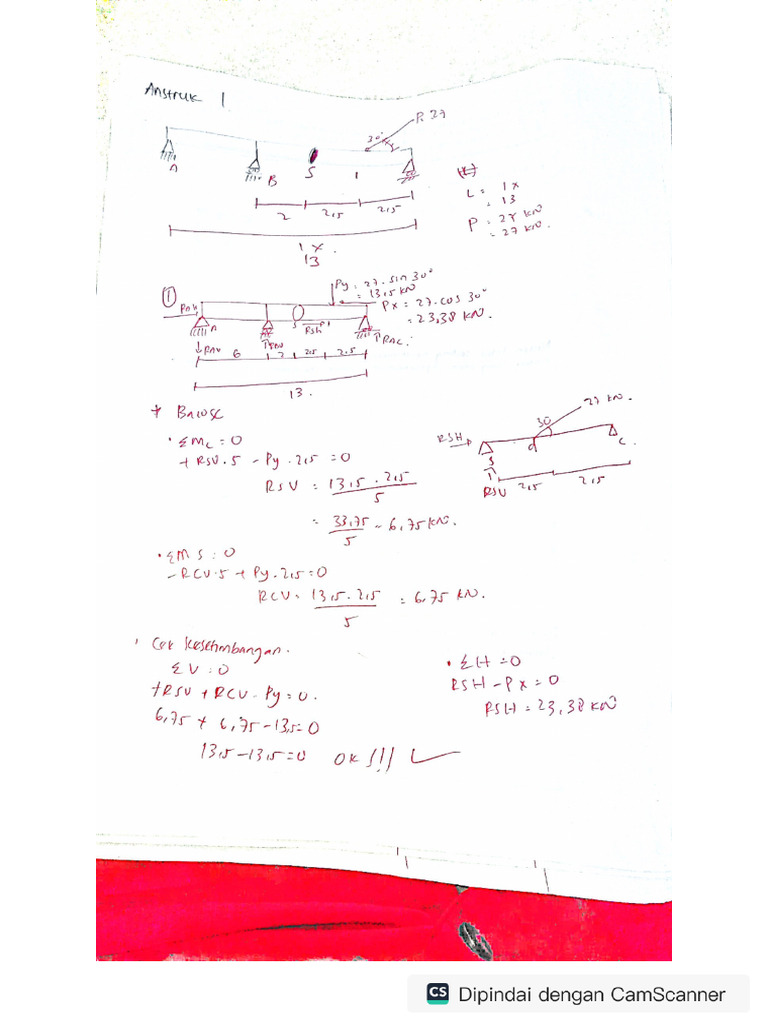 Anstruk 1
P 27
30°
A
B
S
1
2
2,5
2,5
1 x
13
L = 1 x
= 13
P = 2x kN
= 27 kN.
1
Py = 27. sin 30°
= 13,5 kN
Px = 27. cos 30°
= 23,38 kN.
A
S
RSH
RAV
RBV
RAC
6
2
2,5
2,5
13.
* Balok SC
• ΣMc = 0
+ RSV. 5 - Py. 2,5 = 0
RSV = 13,5 . 2,5
5
= 33,75 = 6,75 kN.
5
27 kN.
30
RSH
S
d
C
RSV
2,5
2,5
• ΣMS = 0
- RCV. 5 + Py. 2,5 = 0
RCV = 13,5. 2,5 = 6,75 kN.
5
• Cek Kesetimbangan.
ΣV = 0
+ RSV + RCV - Py = 0.
6,75 + 6,75 - 13,5 = 0
13,5 - 13,5 = 0 OK !!!
• ΣH = 0
RSH - Px = 0
RSH = 23,38 kN
CS Dipindai dengan CamScanner